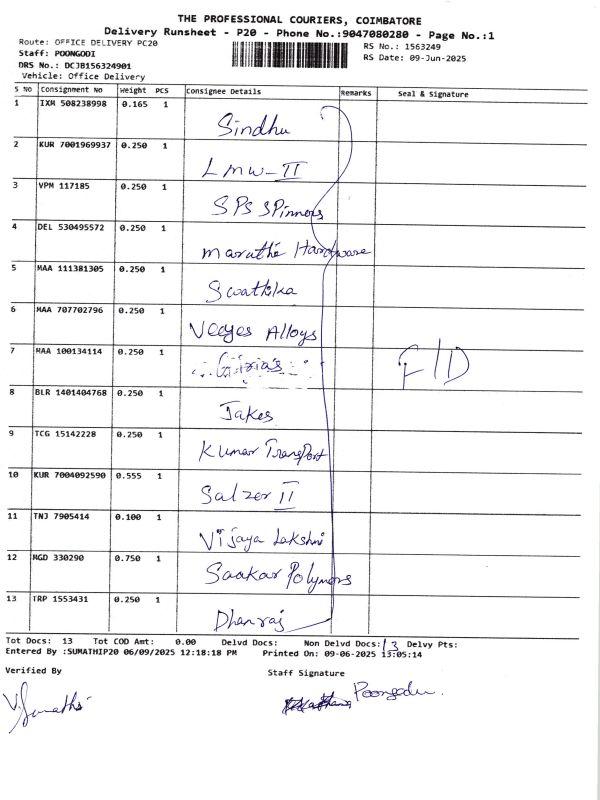 THE PROFESSIONAL COURIERS, COIMBATORE
Delivery Runsheet - P20 - Phone No.:9047080280 - Page No.:1
Route: OFFICE DELIVERY PC20
RS No.: 1563249
Staff: POONGODI
RS Date: 09-Jun-2025
DRS No.: DCJB156324901
Vehicle: Office Delivery
S NO Consignment No Weight PCS Consignee Details Remarks Seal & Signature
1 IXM 508238998 0.165 1 Sindhu
2 KUR 7001969937 0.250 1 LMW-II
3 VPM 117185 0.250 1 SPS SPinners
4 DEL 530495572 0.250 1 maruthi Hardware
5 MAA 111381305 0.250 1 Swathika
6 MAA 707702796 0.250 1 Veejes Alloys
7 MAA 100134114 0.250 1 Girias F/D
8 BLR 1401404768 0.250 1 Jakes
9 TCG 15142228 0.250 1 Kumar TransPort
10 KUR 7004092590 0.555 1 Salzer II
11 TNJ 7905414 0.100 1 Vijaya Lakshmi
12 MGD 330290 0.750 1 Saakar Polymers
13 TRP 1553431 0.250 1 Dhanraj
Tot Docs: 13 Tot COD Amt: 0.00 Delvd Docs: Non Delvd Docs: 13 Delvy Pts:
Entered By :SUMATHIP20 06/09/2025 12:18:18 PM Printed On: 09-06-2025 13:05:14
Verified By
Staff Signature
V. Sumathi
Poongodi.